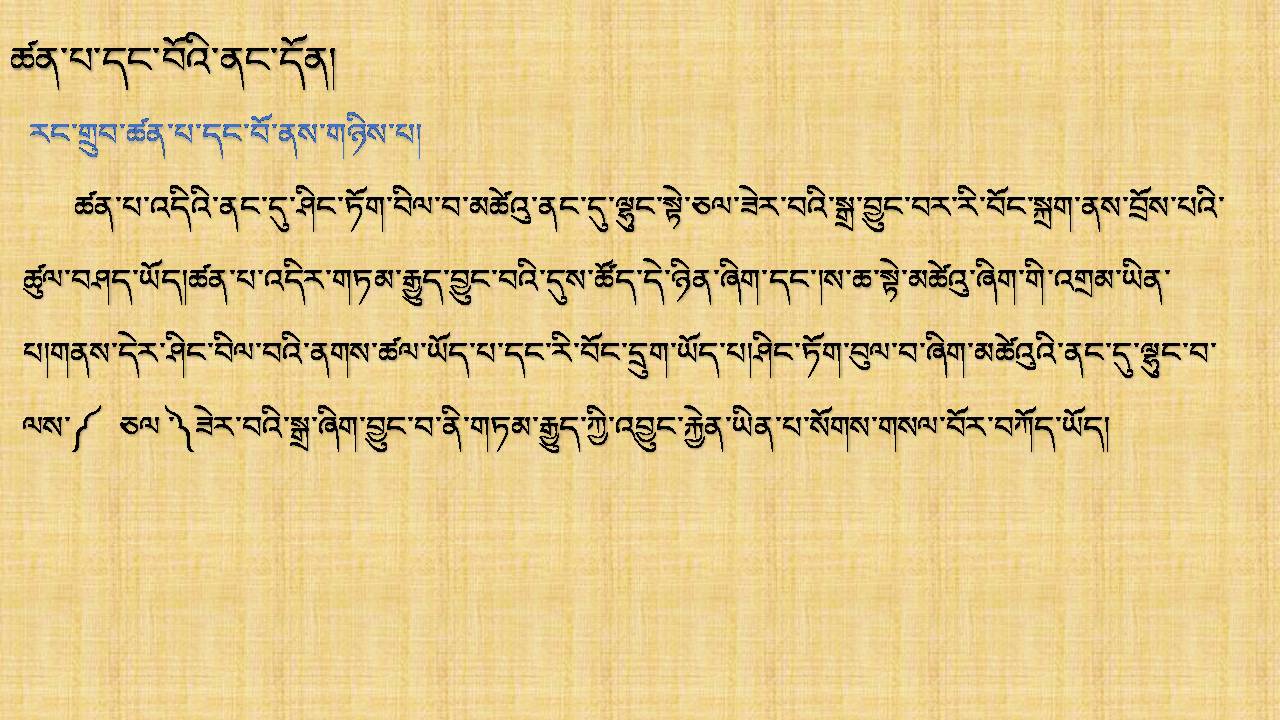 ཚན་པ་དང་བོའི་ནང་དོན།
རང་གྲུབ་ཚན་པ་དང་བོ་ནས་གཉིས་པ།
ཚན་པ་འདིའི་ནང་དུ་ཤིང་ཏོག་བིལ་བ་མཚེའུ་ནང་དུ་ལྷུང་སྟེ་ཅལ་ཟེར་བའི་སྒྲ་བྱུང་བར་རི་བོང་སྐྲག་ནས་བྲོས་པའི་
ཚུལ་བཤད་ཡོད།ཚན་པ་འདིར་གཏམ་རྒྱུད་བྱུང་བའི་དུས་ཚོད་དེ་ཉིན་ཞིག་དང་།ས་ཆ་སྟེ་མཚེའུ་ཞིག་གི་འགྲམ་ཡིན་
པ།གནས་དེར་ཤིང་བིལ་བའི་ནགས་ཚལ་ཡོད་པ་དང་རི་བོང་དྲུག་ཡོད་པ།ཤིང་ཏོག་བུལ་བ་ཞིག་མཚེའུའི་ནང་དུ་ལྷུང་བ་
ལས་༼ ཅལ་༽ཟེར་བའི་སྒྲ་ཞིག་བྱུང་བ་ནི་གཏམ་རྒྱུད་ཀྱི་འབྱུང་རྐྱེན་ཡིན་པ་སོགས་གསལ་བོར་བཀོད་ཡོད།